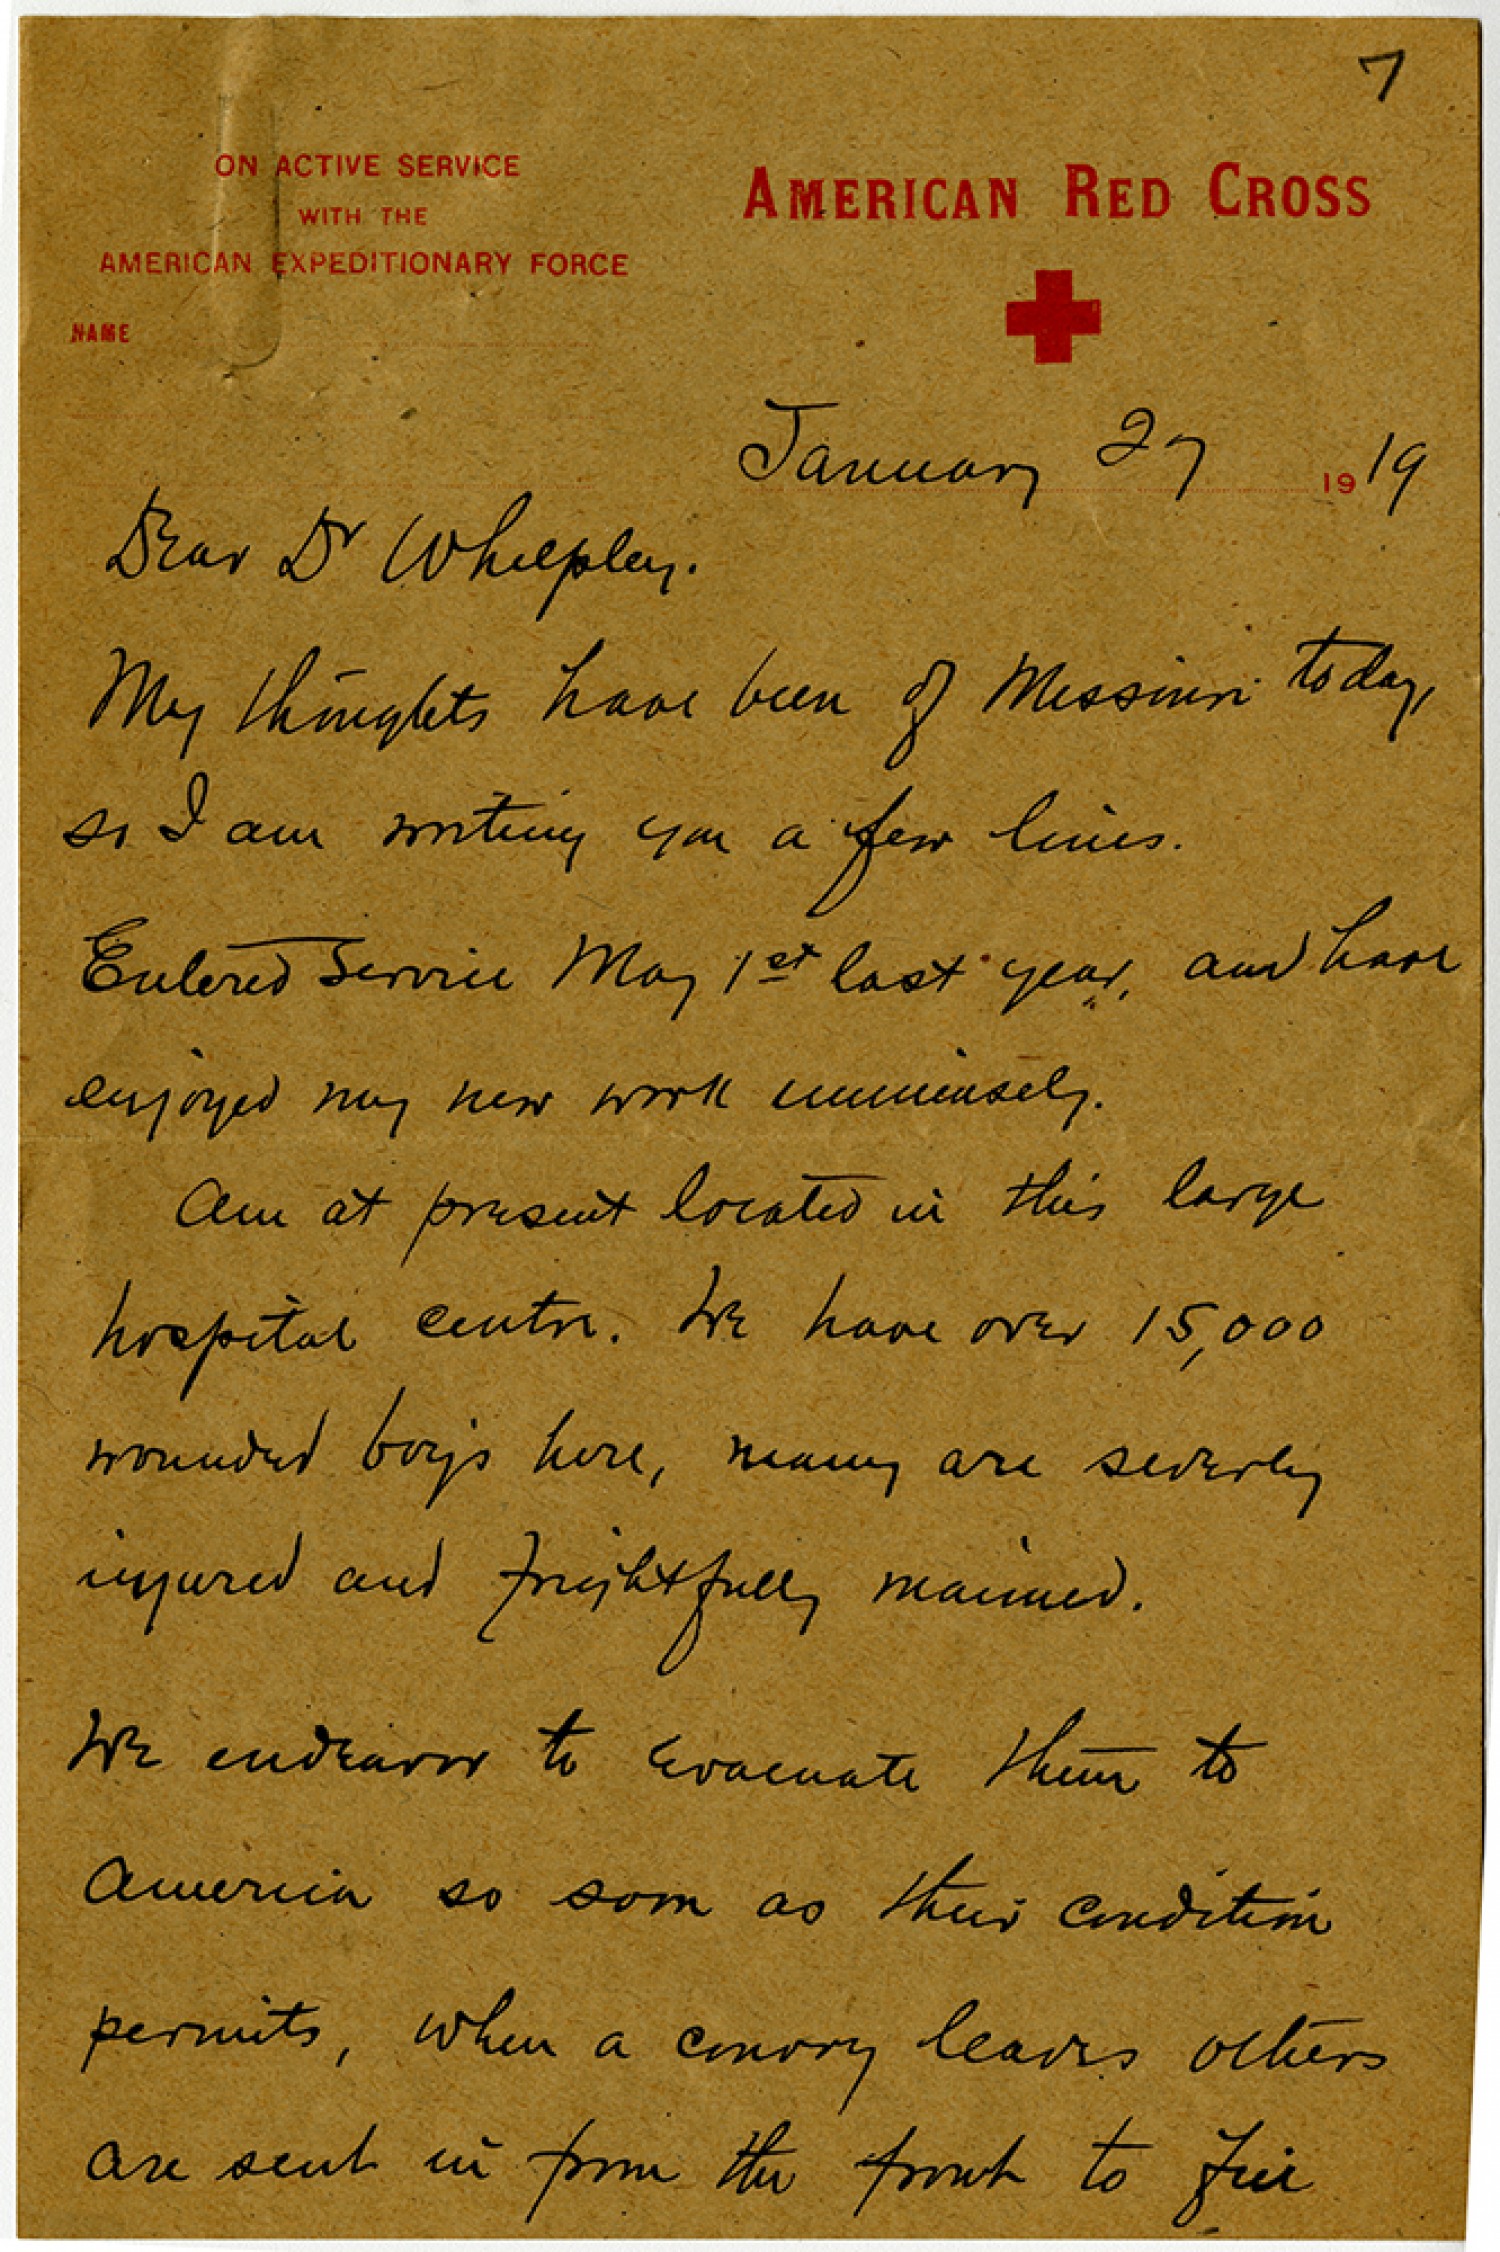 7
ON ACTIVE SERVICE
WITH THE
AMERICAN EXPEDITIONARY FORCE
NAME
AMERICAN RED CROSS
January 27 1919
Dear Dr Whelpley.
My thoughts have been of Missouri today,
so I am writing you a few lines.
Entered Service May 1st last year, and have
enjoyed my new work immensely.
Am at present located in this large
hospital centre. We have over 15,000
wounded boys here, many are severly
injured and frightfully maimed.
We endeavor to evacuate them to
America so soon as their condition
permits, when a convoy leaves others
are sent in from the front to fill